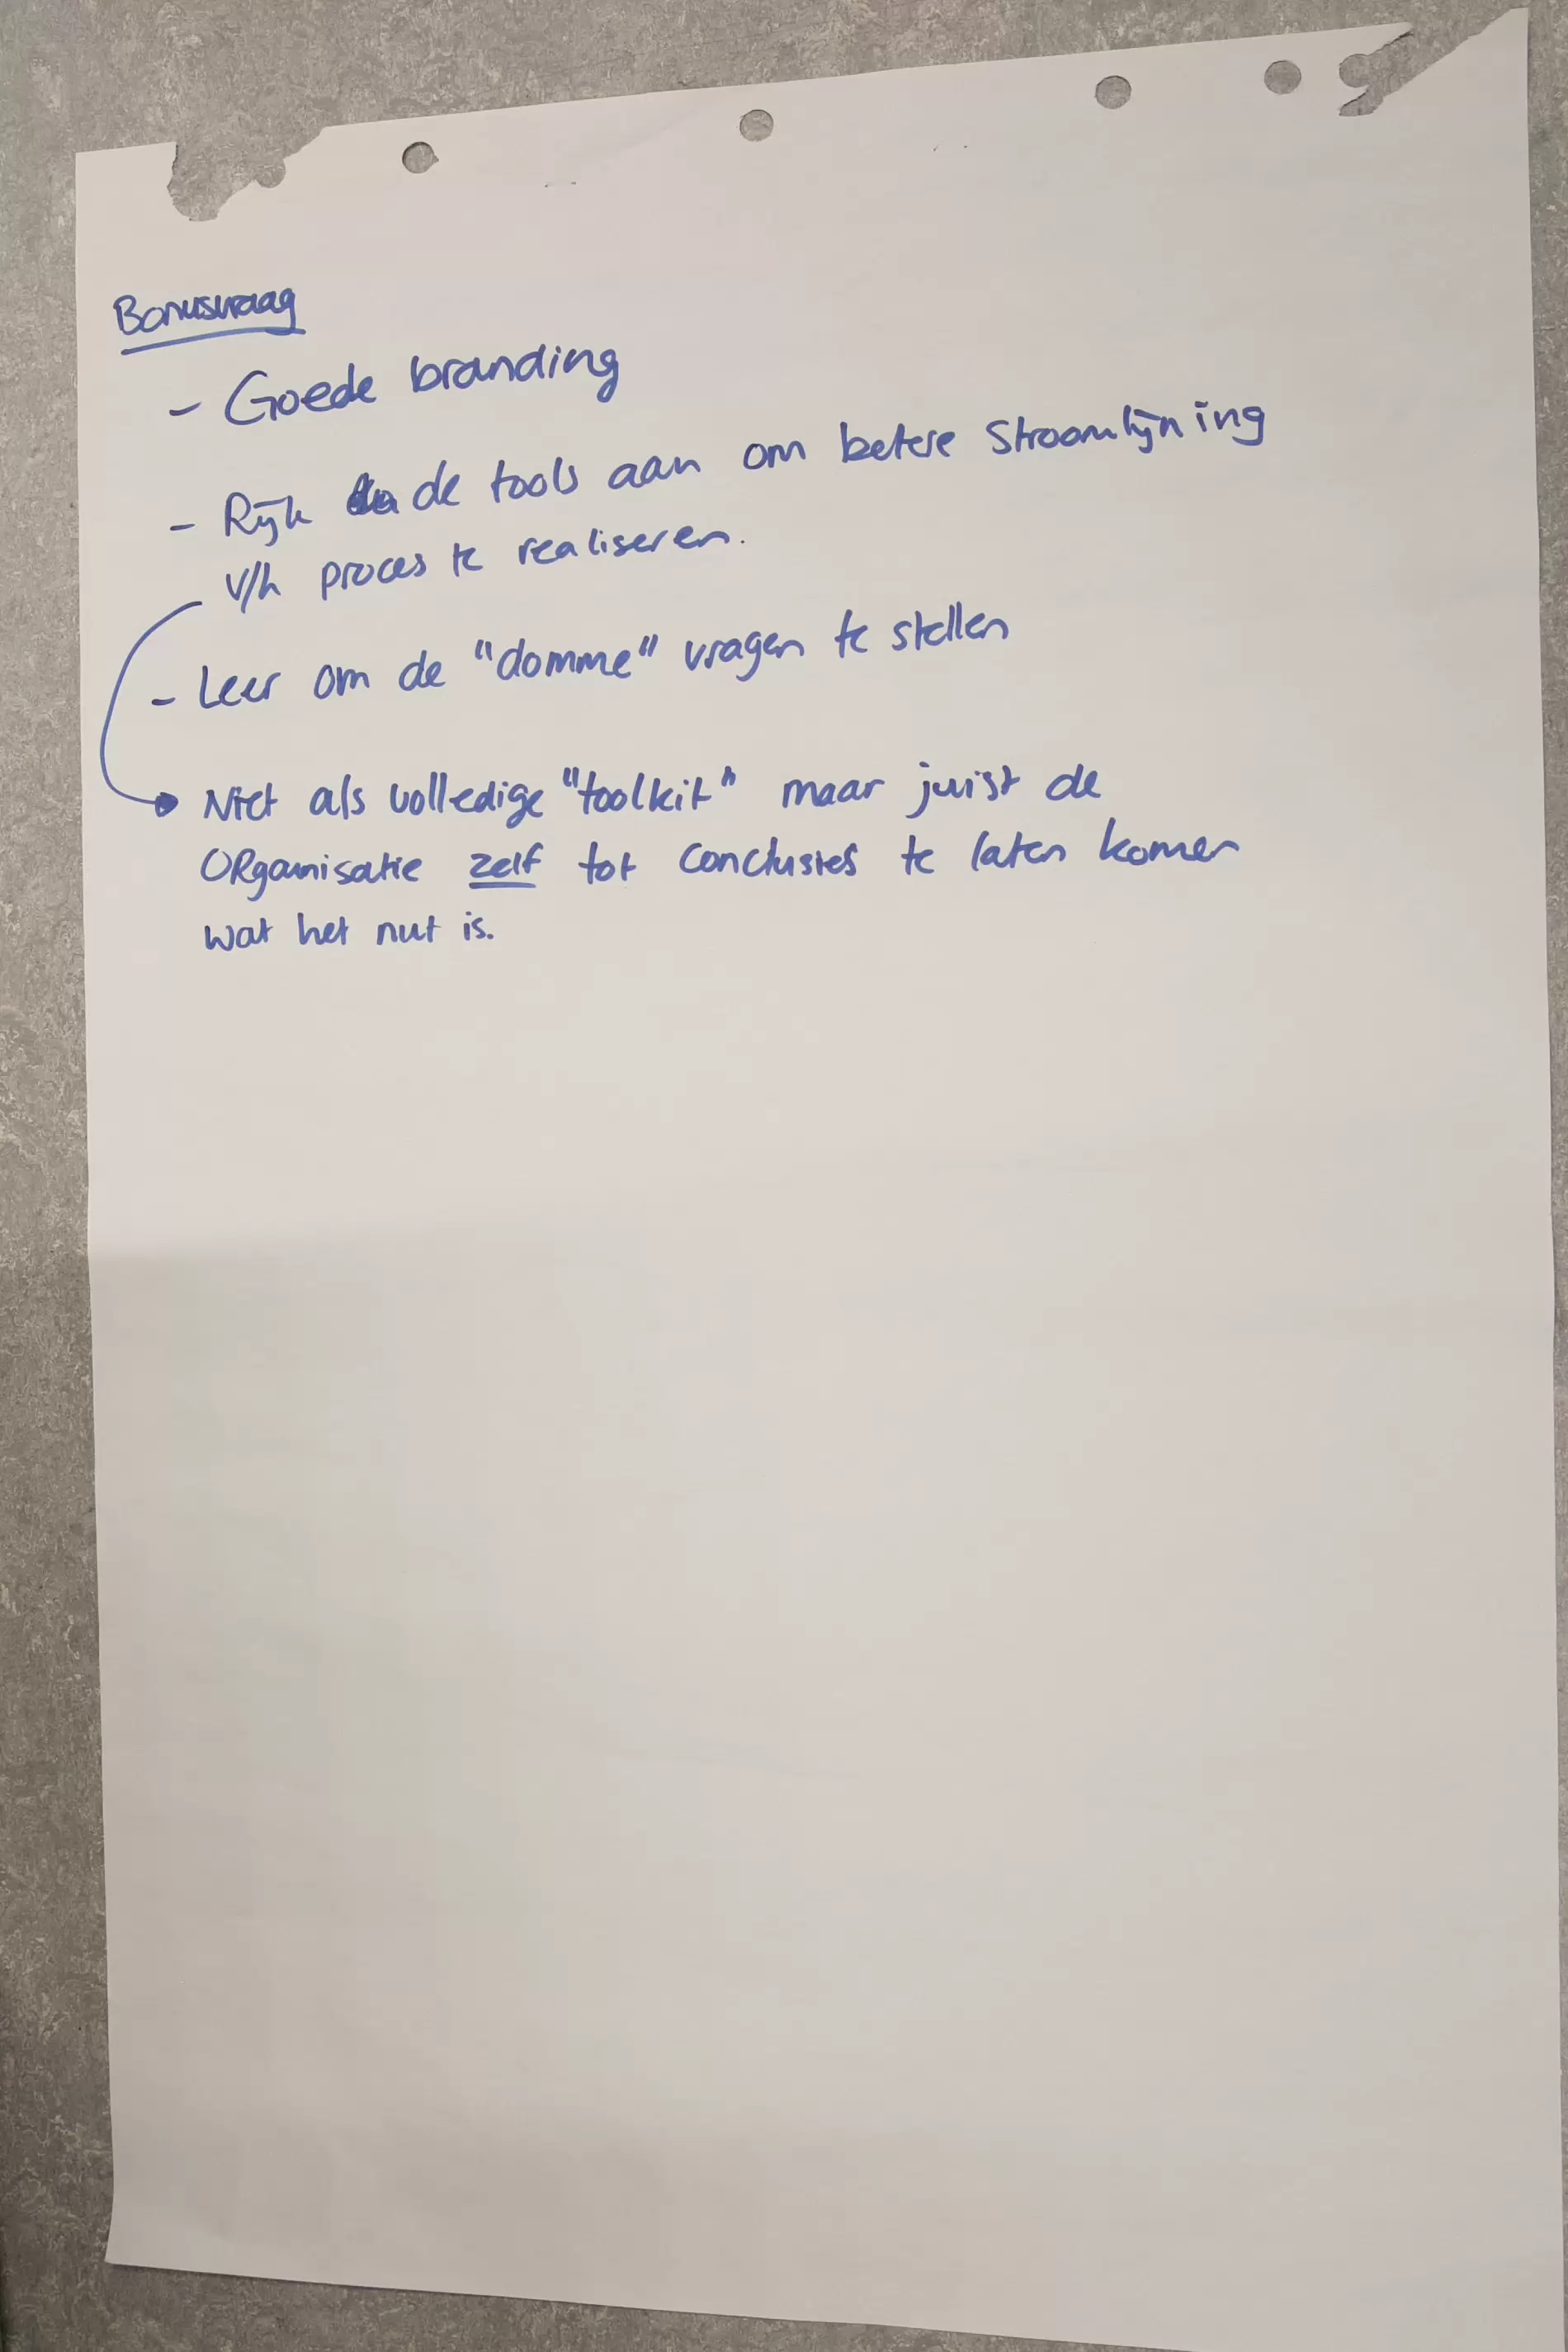 Bonusvraag
- Goede branding
- Rijk de tools aan om betere Stroomlijning
v/h proces te realiseren.
- Leer om de "domme" vragen te stellen
Niet als volledige "toolkit" maar juist de
ORganisatie zelf tot conclusies te laten komen
wat het nut is.